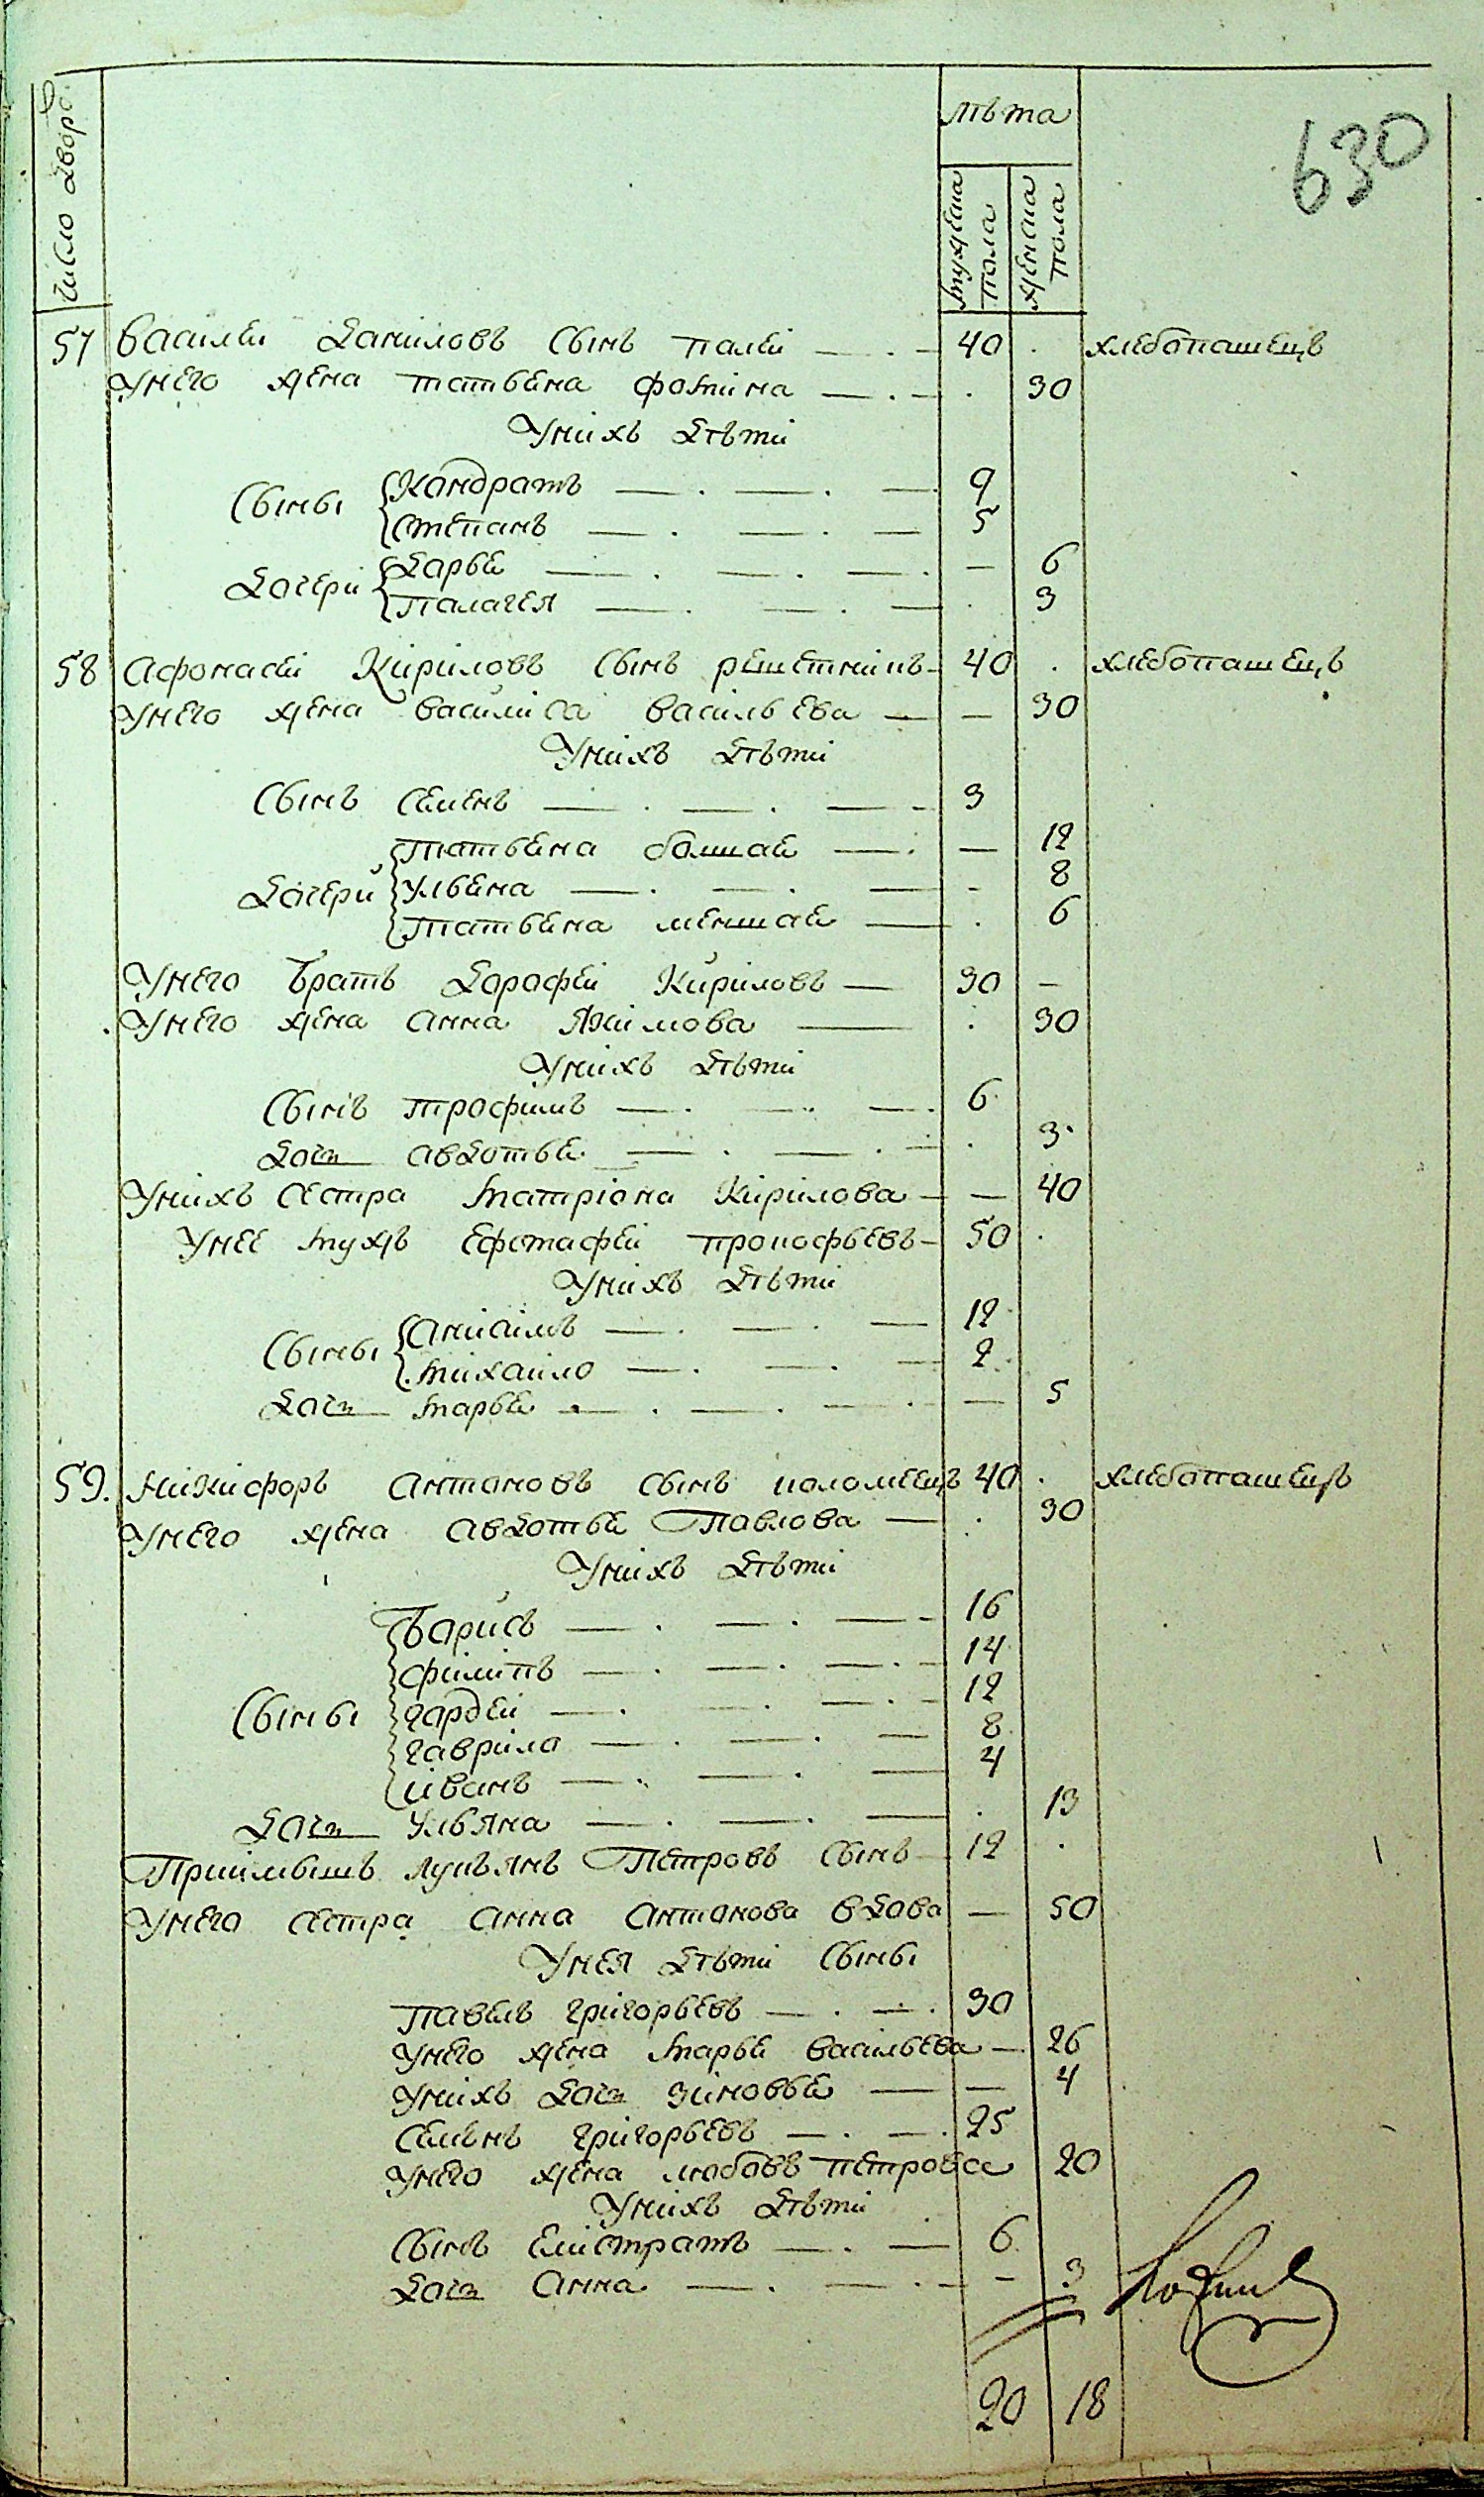 630
Число дворо.
лѣта
мужеска пола
женска пола
57 Василеи данiиловъ сынъ палеi — 40 . хлебопашецъ
Унего жена татьѣна фомiна — . 30
Унiхъ дѣтi
Сынъı Кондратъ — 9
Степанъ — 5
Дочерi дарьѣ — 6
Палагея — . 3
58 Афонасеi Кiрiловъ сынъ решетнiкъ 40 . хлебопашецъ
Унего жена василiса васiльева — 30
Унiхъ дѣтi
Сынъ Семенъ — 3
Дочери Татьѣна болшаѣ — 12
Ульѣна — 8
Татьѣна меншаѣ — . 6
Унего братъ дорофеi Кирiловъ — 30 —
Унего жена анна Якiмова — . 30
Унiхъ дѣтi
Сынъ трофимъ — 6
дочь авдотьѣ — . 3
Унiхъ сестра матрiона Кiрiлова — 40
Унее мужъ ефстафеi прокофьевъ — 50 .
Унiхъ дѣтi
Сынъı Акiимъ — 12
Михаило — 2
дочь марьѣ — 5
59. Никифоръ антоновъ сынъ коломеецъ 40 . хлебопашецъ
Унего жена авдотьѣ Павлова — . 30
Унiхъ дѣтi
Сынъı Борисъ — 16
Филипъ — 14
гордеi — 12
гаврiло — 8
iванъ — 4
дочь Ульяна — . 13
Прiимышъ лукъянъ Петровъ сынъ — 12 .
Унего сестра анна антонова вдова — 50
Унея дѣтi сынъı
Павелъ григорьевъ — 30
Унего жена марьѣ васiльева — 26
Унiхъ дочь зiновьѣ — 4
Семѣнъ григорьевъ — 25
Унего жена любовъ петрова 20
Унiхъ дѣтi
Сынъ Елiстратъ — 6
дочь Анна — 3
20 18